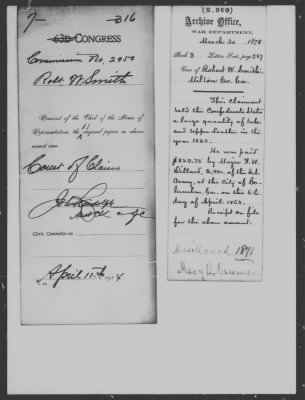 7- 316
63D CONGRESS
Commission No. 2950
Robt W Smith
Received of the Clerk of the House of
Representatives the original papers in above
named case.
Court of Claims
Clerk, Committee on
April 11th 1914
(2,959)
Archive Office,
WAR DEPARTMENT,
March 30 1878
Book 3 Letters Sent, page 257
Case of Robert W. Smith,
Milton Co. Ga.
This Claimant
sold the Confederate States
a large quantity of Sole
and Upper Leather in the
year 1863.
He was paid
$840.75 by Major F. W.
Dillard, Q.M. of the C.S.
Army, at the City of Co-
lumbus, Ga. on the 6th
day of April 1863.
Receipt on file
for the above amount.
Disallowed 1871
Mary H.